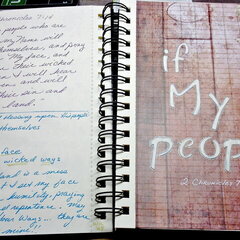 people who are
my Name will
themselves, and pray
My face, and
their wicked
I will hear
and will
their sin and
land."
blessing upon His people
themselves
face
wicked ways
land is a mess
my face
humility, praying
repentance. May
your Ways... they are
mine!
if
My
PEOPL
2 Chronicles 7